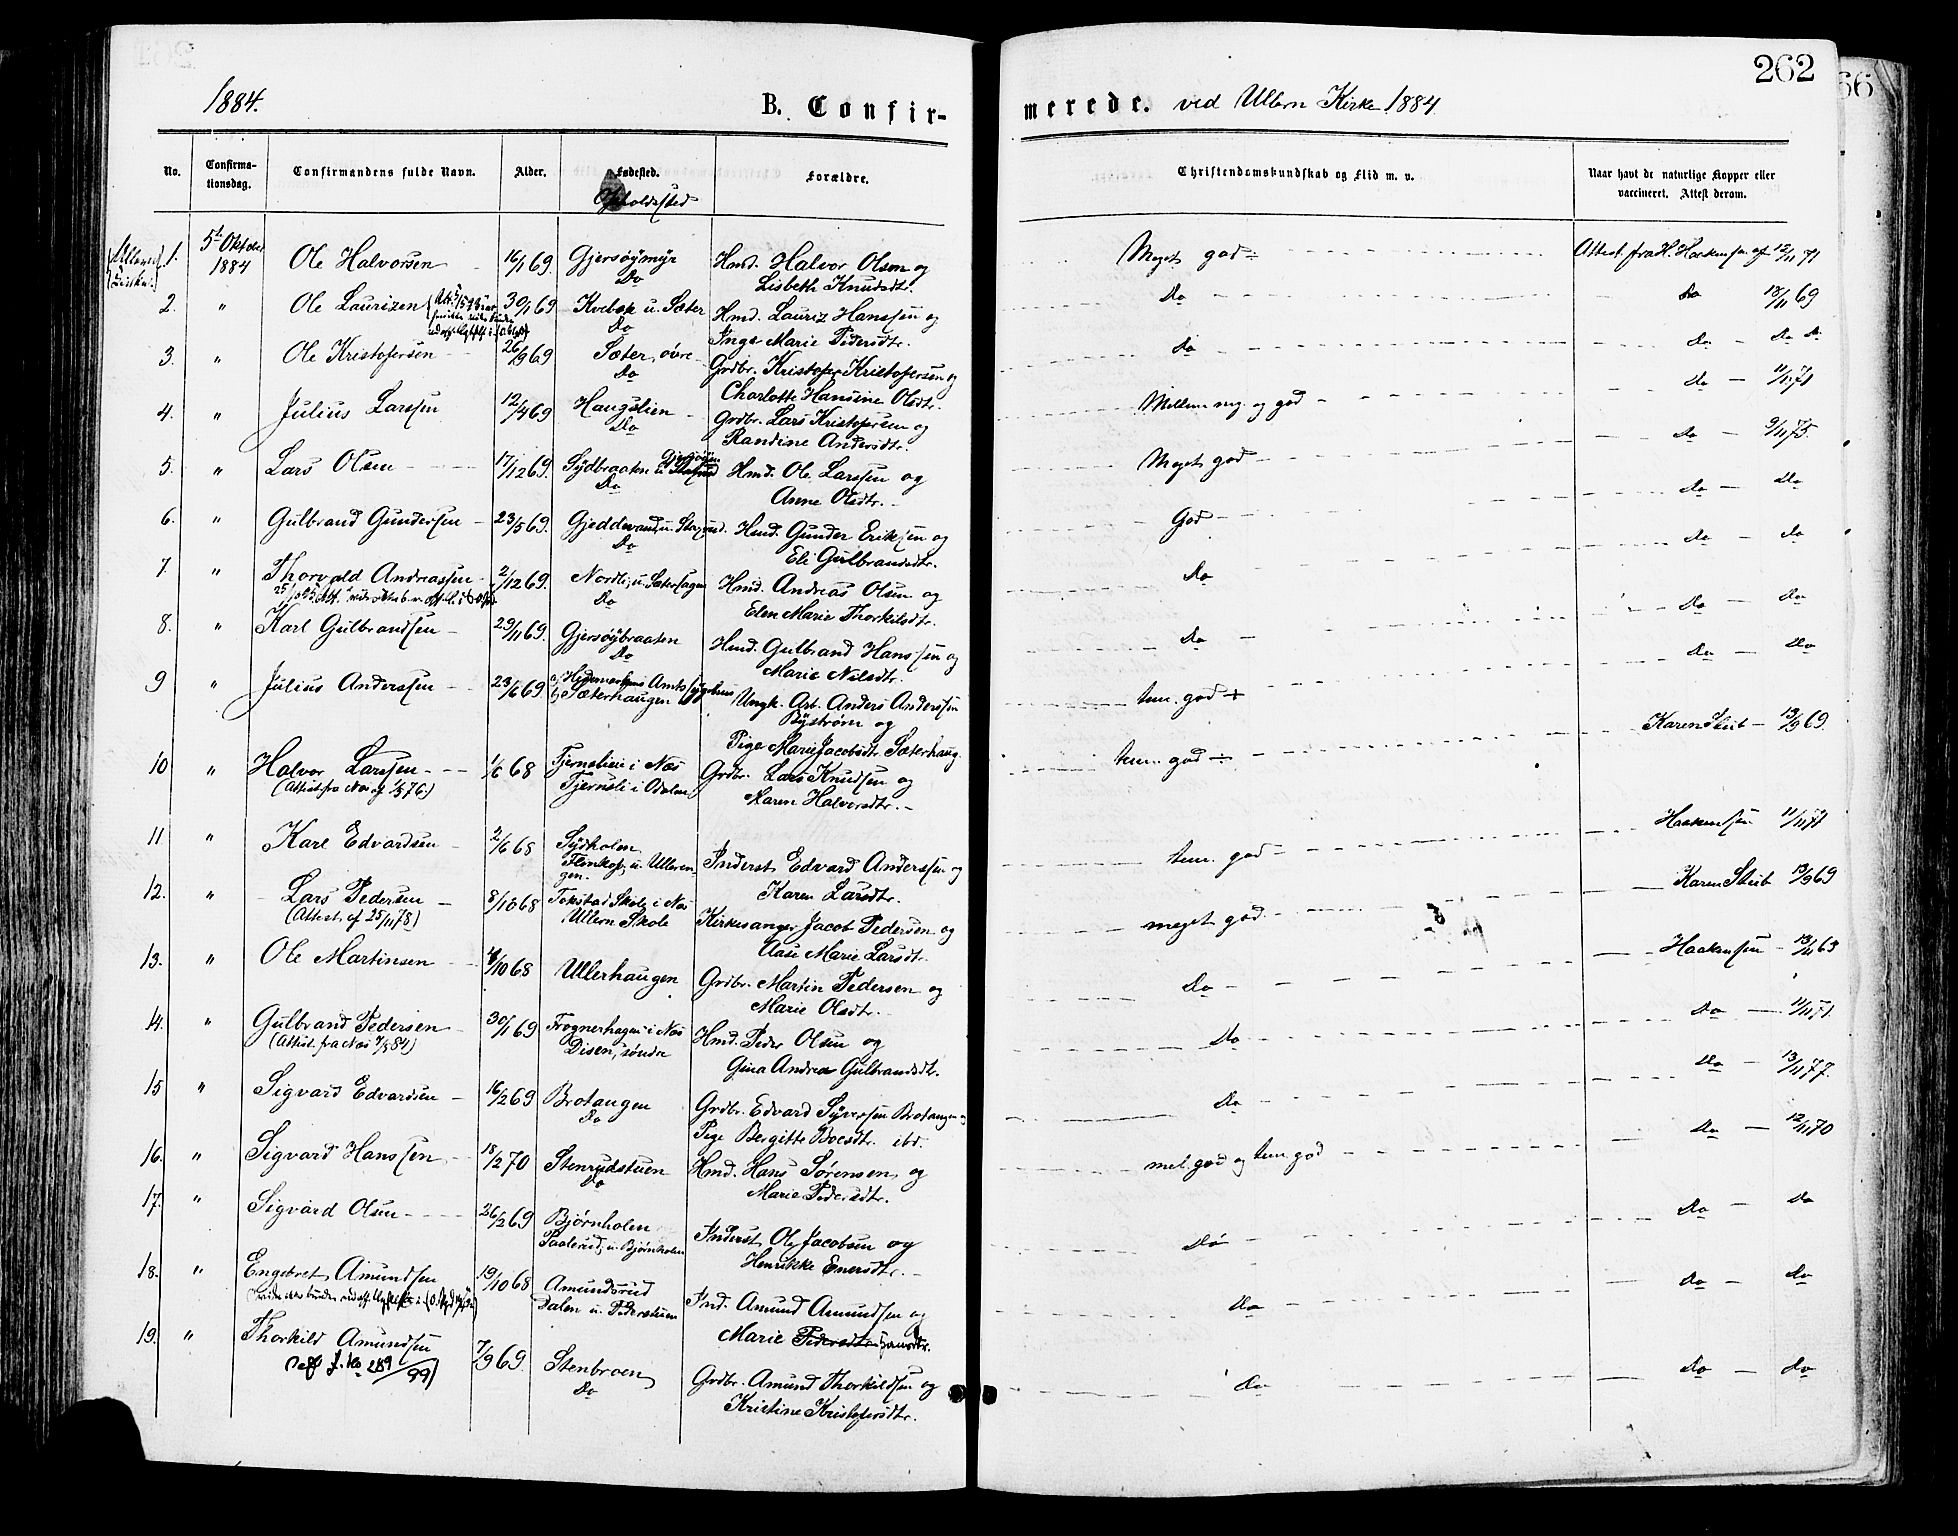 262
1884.
B. Confir-
merede. ved Ullern Kirke 1884
No.
Confirma-
tionsdag.
Confirmandens fulde Navn.
Alder.
Fødested.
Opholdssted
Forældre.
Christendomskundskab og Flid m. v.
Naar havt de naturlige Kopper eller
vaccineret. Attest derom.
1. 5te Oktober 1884 Ole Halvorsen 16/1 69. Gjersøymyr Hmd. Halvor Olsen og Meget god Attest fra H. Haakensen af 12/11 71
Do Lisbeth Knudsdtr.
2. " Ole Laurizen 30/1 69 Kvebek u. Sæter Hmd. Lauriz Hanssen og Do Do 18/11 69
Do Inge Marie Pedersdtr.
3. " Ole Kristofersen 26/9 69 Sæter, øvre Grdbr. Kristofer Kristofersen og Do Do Do Do
Do Charlotte Hansine Olsdtr.
4. " Julius Larssen 12/4 69 Haugslien Grdbr. Lars Kristofersen og Mellem mg. og god Do 11/11 71
Do Randine Andersdtr.
5. " Lars Olsen 17/12 69. Sydbraaten u. Hmd. Ole Larssen og Meget god Do 9/11 75.
Do Anne Olsdtr.
6. " Gulbrand Gundersen 23/5 69. Gjeddevand u. Hmd. Gunder Eriksen og God Do Do
Do Eli Gulbrandsdtr.
7. " Thorvald Andreassen 2/12 69. Nordli, u. Sætersagen Hmd. Andreas Olsen og Do Do Do
Do Elen Marie Thorkilsdtr.
8. " Karl Gulbrandsen 29/11 69. Gjersøybraaten Hmd. Gulbrand Hanssen og Do Do Do
Do Marie Nilsdtr.
9 " Julius Anderssen 23/6 69 a) Hedemarkens Amts Sygehus Ungk. Arb. Anders Anderssen tem. god + Do Do
b) Sæterhaugen Bystrøm og
Pige Marie Jacobsdtr. Sæterhaug.
10 " Halvor Larssen 1/6 68 Tjernslien i Næs Grdbr. Lars Knudsen og tem. god Karen Skub 13/9 69.
(Attest fra Næs af 1/5 76.) Tjernsli i Odalen Karen Halvorsdtr.
11 " Karl Edvardsen 2/6 68 Sydholen Inderst Edvard Anderssen og tem. god Haakensen 11/11 71
u. Ulleren-
gen. Karen Larsdtr.
12. " Lars Pedersen 8/10 68 Tokstad Skole i Næs Kirkesanger Jacob Pedersen og meget god Karen Skub 13/9 69
(Attest af 25/11 78) Ullern Skole Aase Marie Larsdtr.
13. " Ole Martinsen /10 68 Ullerhaugen Grdbr. Martin Pedersen og Do Haakensen 13/11 63
Marie Olsdtr.
14. " Gulbrand Pedersen 30/1 69 Frognerhagen i Næs Hmd. Peder Olsen og Do Do 11/11 71.
(Attest fra Næs 7/5 84) Disen, søndre Gina Andrea Gulbrandsdtr.
15 " Sigvard Edvardsen 16/2 69 Brotangen Grdbr. Edvard Syversen Brotangen og Do Do 13/11 77.
Do Pige Bergitte Boesdtr. ibd.
16. " Sigvard Hanssen 18/2 70 Stenrudstuen Hmd. Hans Sørensen og mel. god og tem. god Do 12/11 70
Do Marie Pedersdtr.
17. " Sigvard Olsen 26/2 69 Bjørnholen Inderst Ole Jacobsen og Do Do Do
Paalerud u. Bjørnholen Henrikke Enersdtr.
18. " Engebret Amundsen 19/10 68 Amundsrud Ind. Amund Amundsen og Do Do Do
Dalen u. Pederstuen Marie Pedersdtr. Hansdtr.
19. " Thorkild Amundsen 7/9 69. Stenbroen Grdbr. Amund Thorkildsen og Do Do Do
289/99) Do Kristine Kristofersdtr.